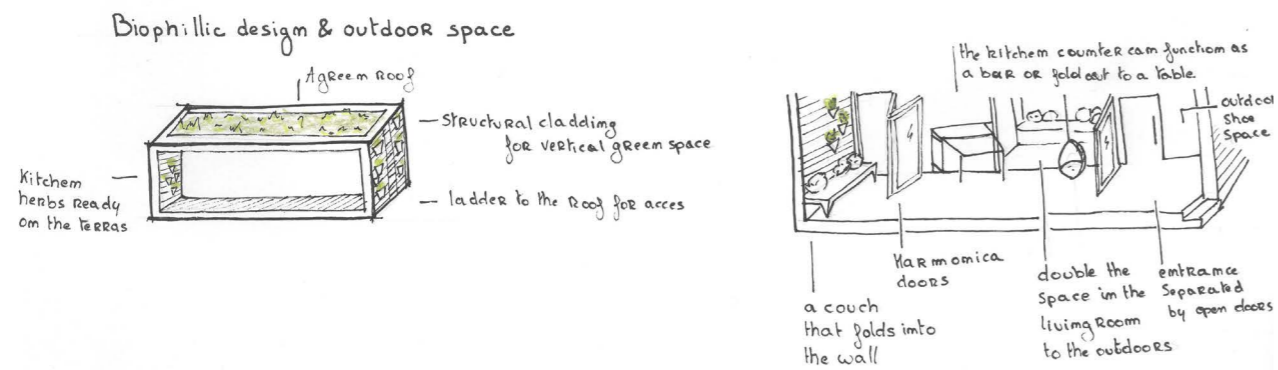 Biophillic design & outdoor space
A green roof
structural cladding
for vertical green space
Kitchen
herbs ready
on the terras
ladder to the roof for acces
the kitchen counter can function as
a bar or fold out to a table.
outdoor
shoe
space
Harmonica
doors
a couch
that folds into
the wall
double the
space in the
living room
to the outdoors
entrance
separated
by open doors